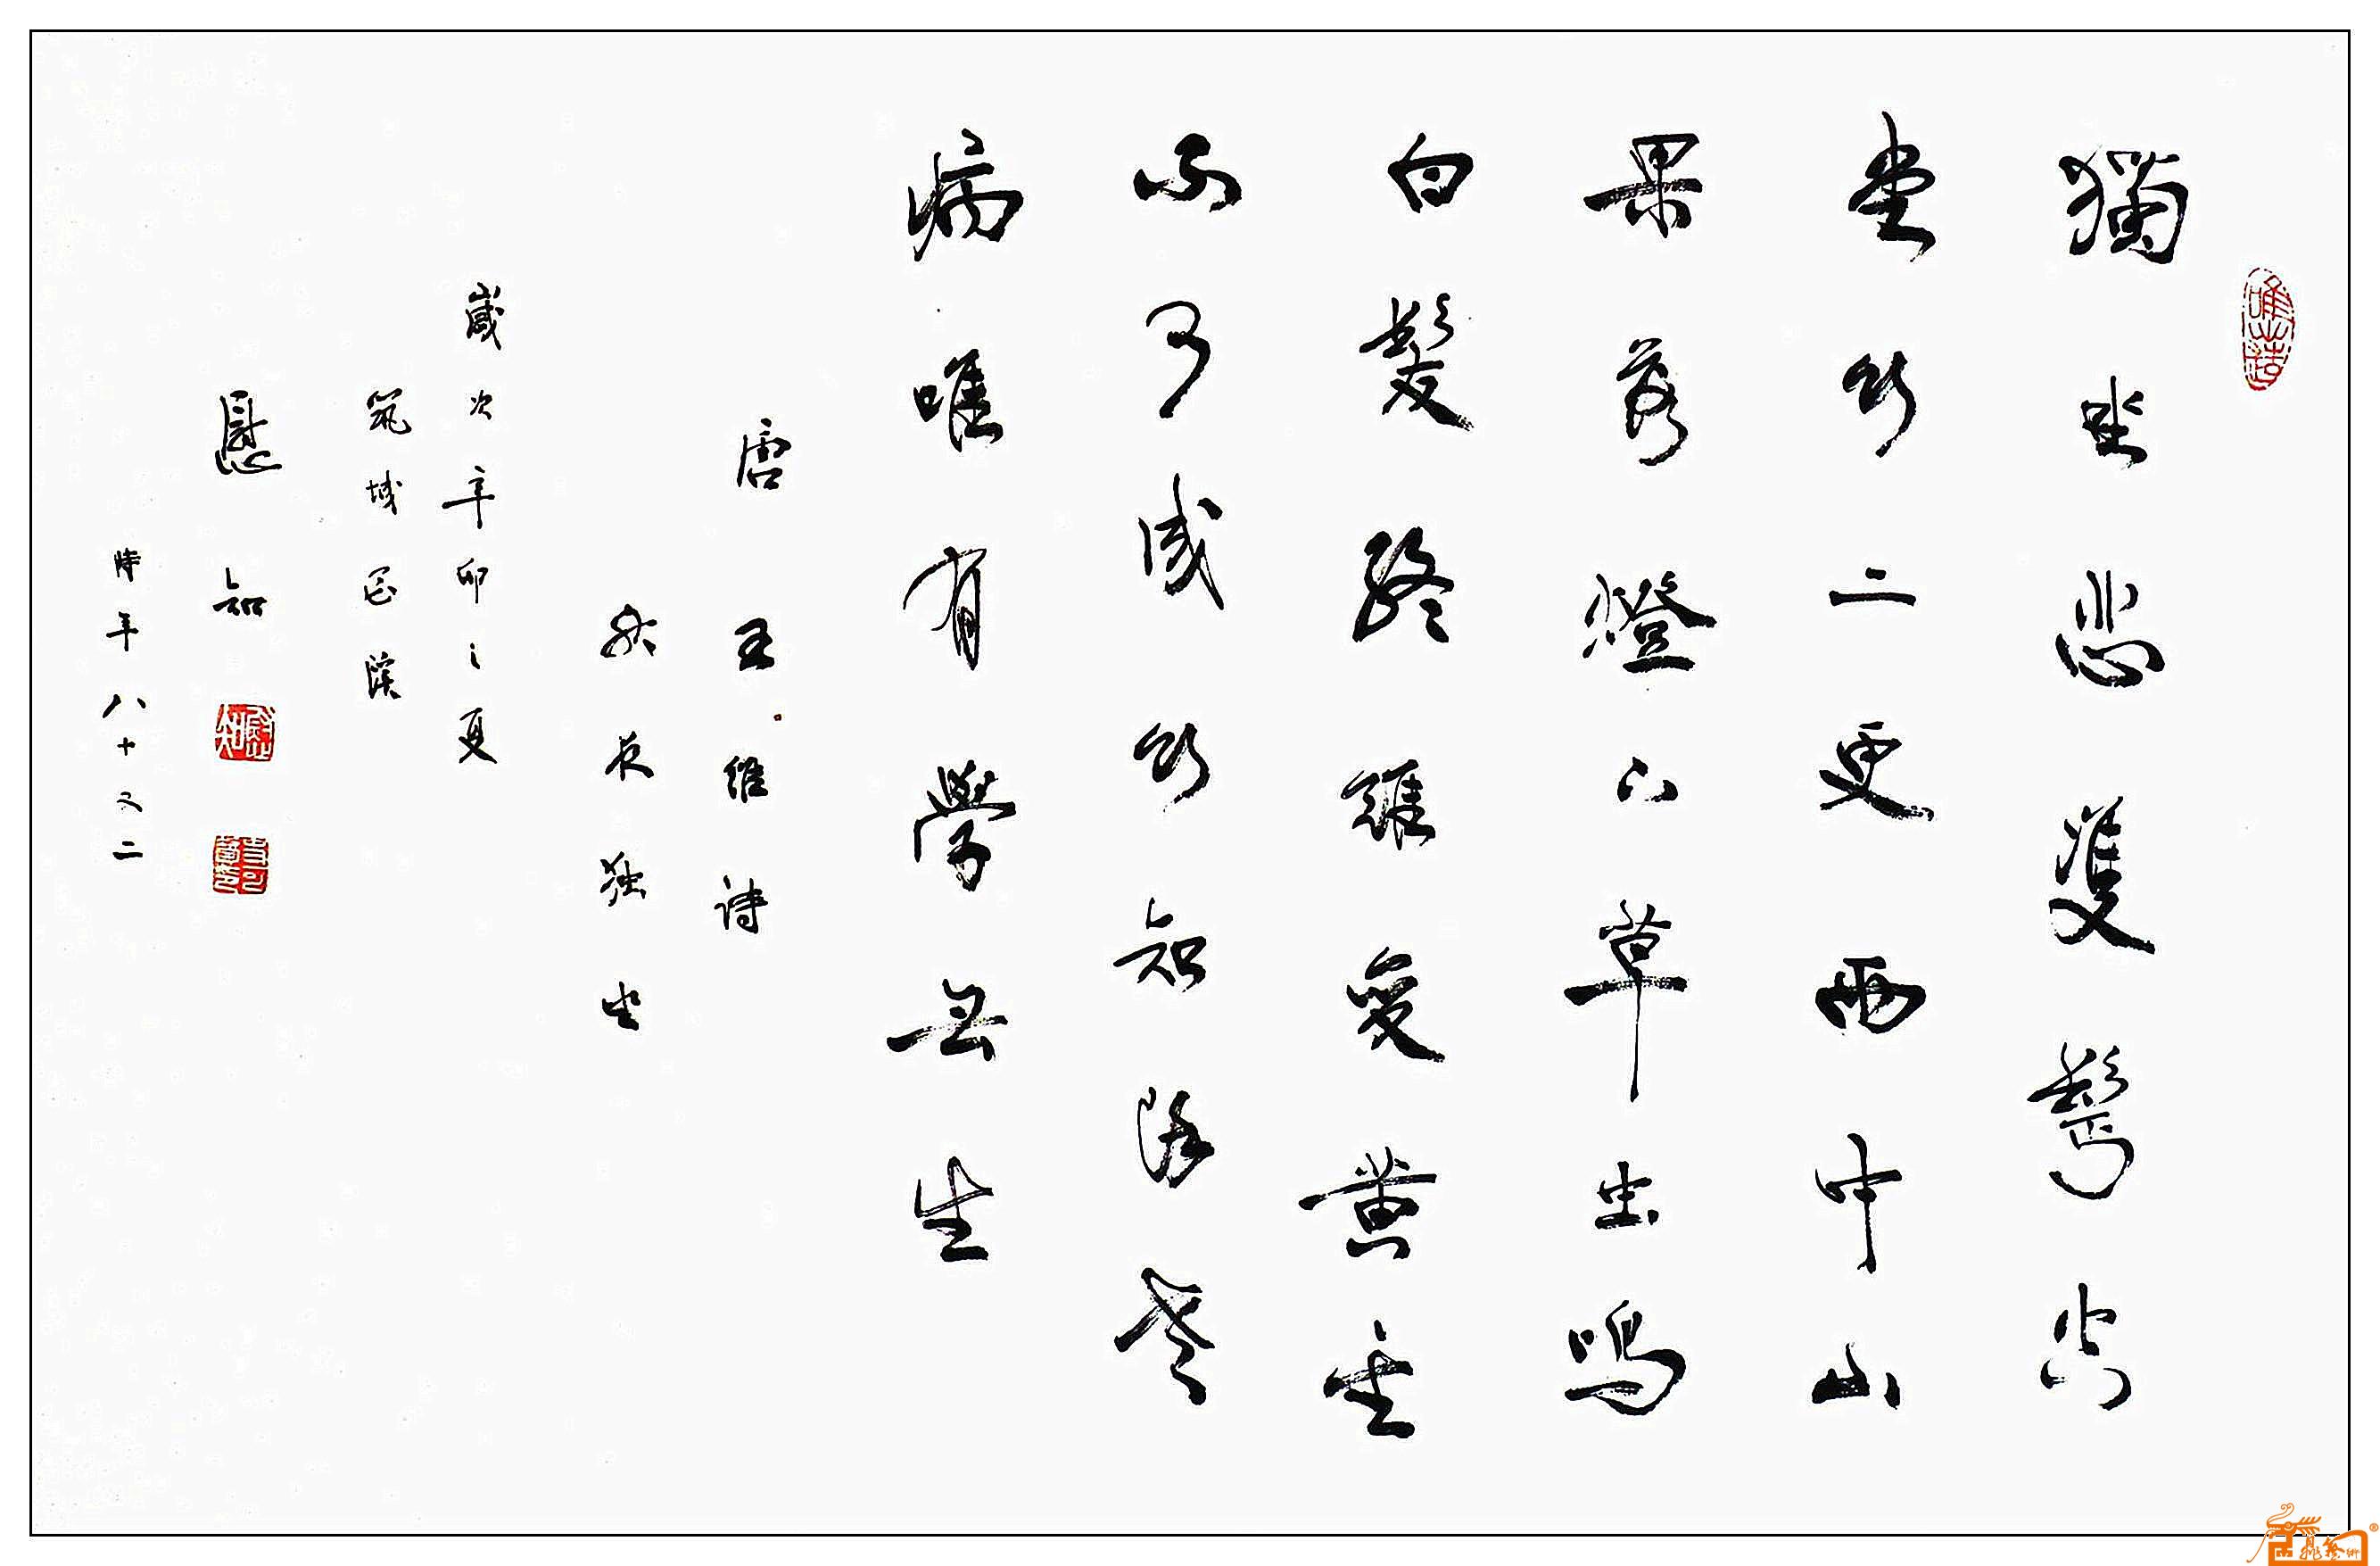 唯心造
獨坐悲雙鬢空
堂欲二更雨中山
果落燈下草虫鳴
白髮終難變黄金
不可成欲知除老
病唯有學无生
唐王维诗
秋夜独坐
歲次辛卯之夏
筑城溪
知
時年八十又二